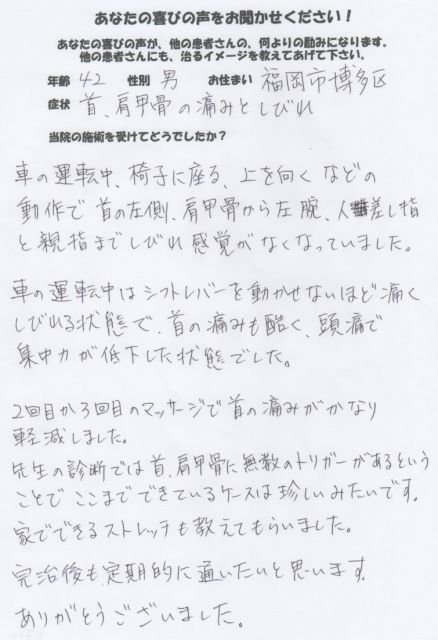 あなたの喜びの声をお聞かせください!
あなたの喜びの声が、他の患者さんの、何よりの励みになります。
他の患者さんにも、治るイメージを教えてあげて下さい。
年齢 42 性別 男 お住まい 福岡市博多区
症状 首、肩甲骨の痛みとしびれ
当院の施術を受けてどうでしたか?
車の運転中、椅子に座る、上を向くなどの
動作で首の左側、肩甲骨から左腕、人差し指
と親指までしびれ感覚がなくなっていました。
車の運転中はシフトレバーを動かせないほど痛く
しびれる状態で、首の痛みも酷く、頭痛で
集中力が低下した状態でした。
2回目から3回目のマッサージで首の痛みがかなり
軽減しました。
先生の診断では首、肩甲骨に無数のトリガーがあるという
ことでここまでできているケースは珍しいみたいです。
家でできるストレッチも教えてもらいました。
完治後も定期的に通いたいと思います。
ありがとうございました。